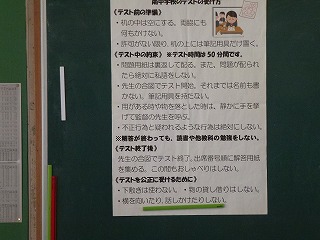 南中学校のテストの受け方
《テスト前の準備》
・机の中は空にする。両脇にも
何もかけない。
・許可がない限り、机の上には筆記用具だけ置く。
《テスト中の約束》 ※テスト時間は50分間です。
・問題用紙は裏返して配る。また、問題が配られ
たら絶対に私語をしない。
・先生の合図でテスト開始。それまでは名前も書
かない。筆記用具を持たない。
・用がある時や物を落とした時は、静かに手を挙
げて監督の先生を呼ぶ。
・不正行為と疑われるような行為は絶対にしない。
※解答が終わっても、読書や他教科の勉強をしない。
《テスト終了後》
先生の合図でテスト終了。出席番号順に解答用紙
を集める。この間もおしゃべりはしない。
《テストを公正に受けるために》
・下敷きは使わない。・物の貸し借りはしない。
・横を向いたり、話しかけたりしない。